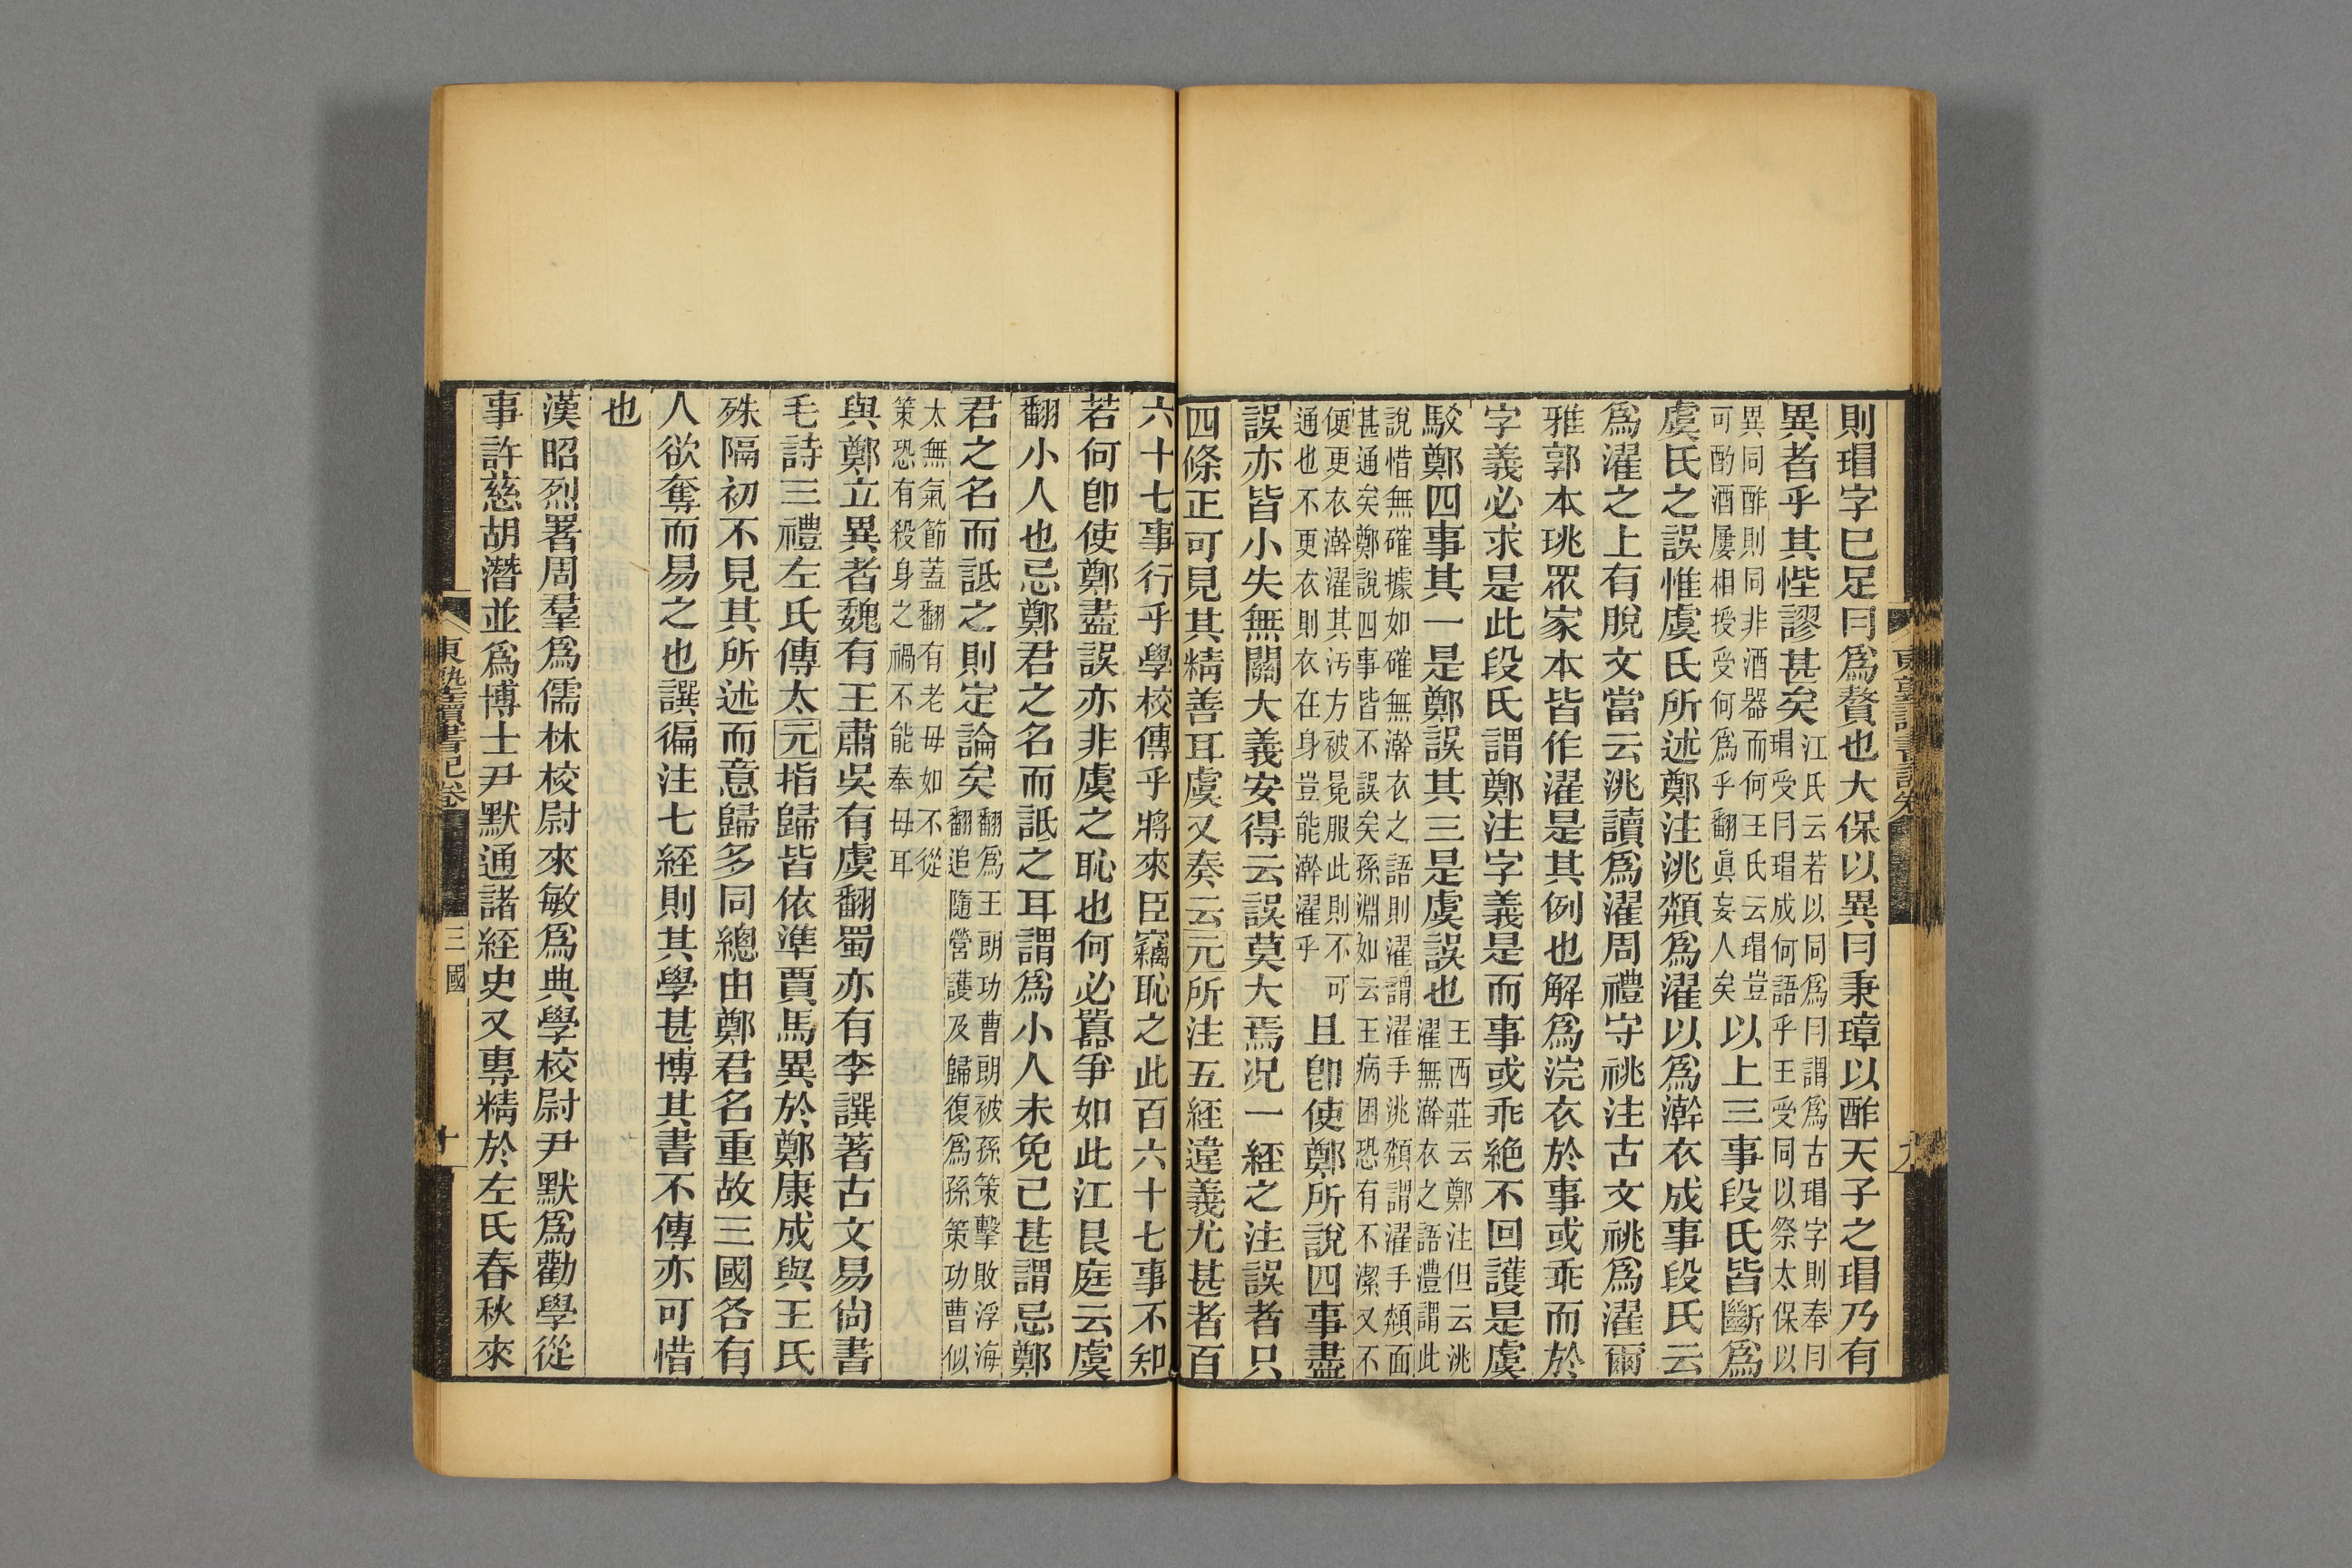 則瑁字已足曰爲贅也大保以異曰秉璋以酢天子之瑁乃有
異者乎其悂謬甚矣江氏云若以同爲曰謂爲古瑁字則奉曰
瑁受曰瑁成何語乎王受同以祭太保以
異同酢則同非酒器而何王氏云瑁豈
可酌酒屢相授受何爲乎翻眞妄人矣以上三事段氏皆斷爲
虞氏之誤惟虞氏所述鄭注洮頮爲濯以爲澣衣成事段氏云
爲濯之上有脫文當云洮讀爲濯周禮守祧注古文祧爲濯爾
雅郭本珧眾家本皆作濯是其例也解爲浣衣於事或乖而於
字義必求是此段氏謂鄭注字義是而事或乖絕不回護是虞
駁鄭四事其一是鄭誤其三是虞誤也王西莊云鄭注但云洮
濯無澣衣之語澧謂此
說惜無確據如確無澣衣之語則濯謂濯手洮頮謂濯手頮面
甚通矣鄭說四事皆不誤矣孫淵如云王病困恐有不潔又不
便更衣澣濯其污方被冕服此則不可
通也不更衣則衣在身豈能澣濯乎且卽使鄭所說四事盡
誤亦皆小失無關大義安得云誤莫大焉况一經之注誤者只
四條正可見其精善耳虞又奏云元所注五經違義尤甚者百
六十七事行乎學校傳乎將來臣竊恥之此百六十七事不知
若何卽使鄭盡誤亦非虞之恥也何必囂爭如此江艮庭云虞
翻小人也忌鄭君之名而詆之耳謂爲小人未免已甚謂忌鄭
君之名而詆之則定論矣翻爲王朗功曹朗被孫策擊敗浮海
翻追隨營護及歸復爲孫策功曹似
太無氣節蓋翻有老母如不從
策恐有殺身之禍不能奉母耳
與鄭立異者魏有王肅吳有虞翻蜀亦有李譔著古文易尙書
毛詩三禮左氏傳太元指歸皆依準賈馬異於鄭康成與王氏
殊隔初不見其所述而意歸多同總由鄭君名重故三國各有
人欲奪而易之也譔徧注七經則其學甚博其書不傳亦可惜
也
漢昭烈署周羣爲儒林校尉來敏爲典學校尉尹默爲勸學從
事許慈胡潛並爲博士尹默通諸經史又專精於左氏春秋來
東塾讀書記卷
三國
十